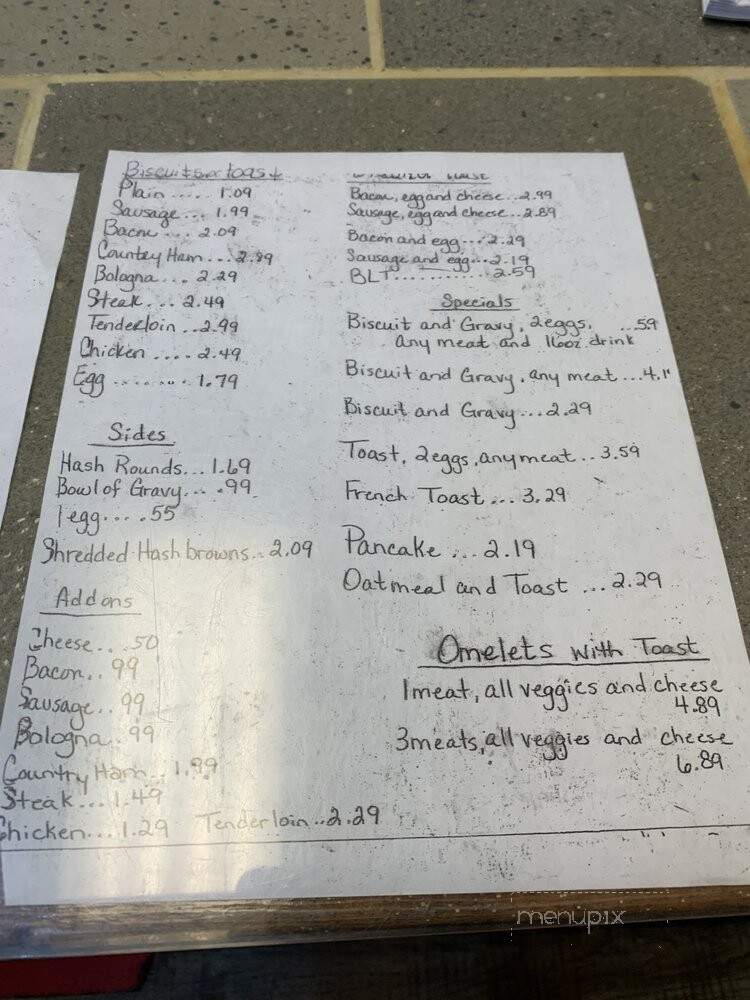 Biscuits or toast
Plain..... 1.09
Sausage... 1.99
Bacon... 2.09
Country Ham... 2.99
Bologna... 2.29
Steak... 2.49
Tenderloin..2.99
Chicken .... 2.49
Egg ........ 1.79
Sides
Hash Rounds... 1.69
Bowl of Gravy.... .99
1 egg.... .55
Shredded Hash browns.. 2.09
Add ons
Cheese... .50
Bacon.. 99
Sausage.. 99
Bologna.. 99
Country Ham.. 1.99
Steak... 1.49
Chicken... 1.29 Tenderloin..2.29
Bacon, egg and cheese...2.99
Sausage, egg and cheese...2.89
Bacon and egg....2.29
Sausage and egg...2.19
BLT............ 2.59
Specials
Biscuit and Gravy, 2eggs, ...59
any meat and 16oz. drink
Biscuit and Gravy, any meat...4.1
Biscuit and Gravy...2.29
Toast, 2eggs, any meat.. 3.59
French Toast ... 3.29
Pancake ... 2.19
Oatmeal and Toast ... 2.29
Omelets with Toast
1 meat, all veggies and cheese
4.89
3 meats, all veggies and cheese
6.89
menupix